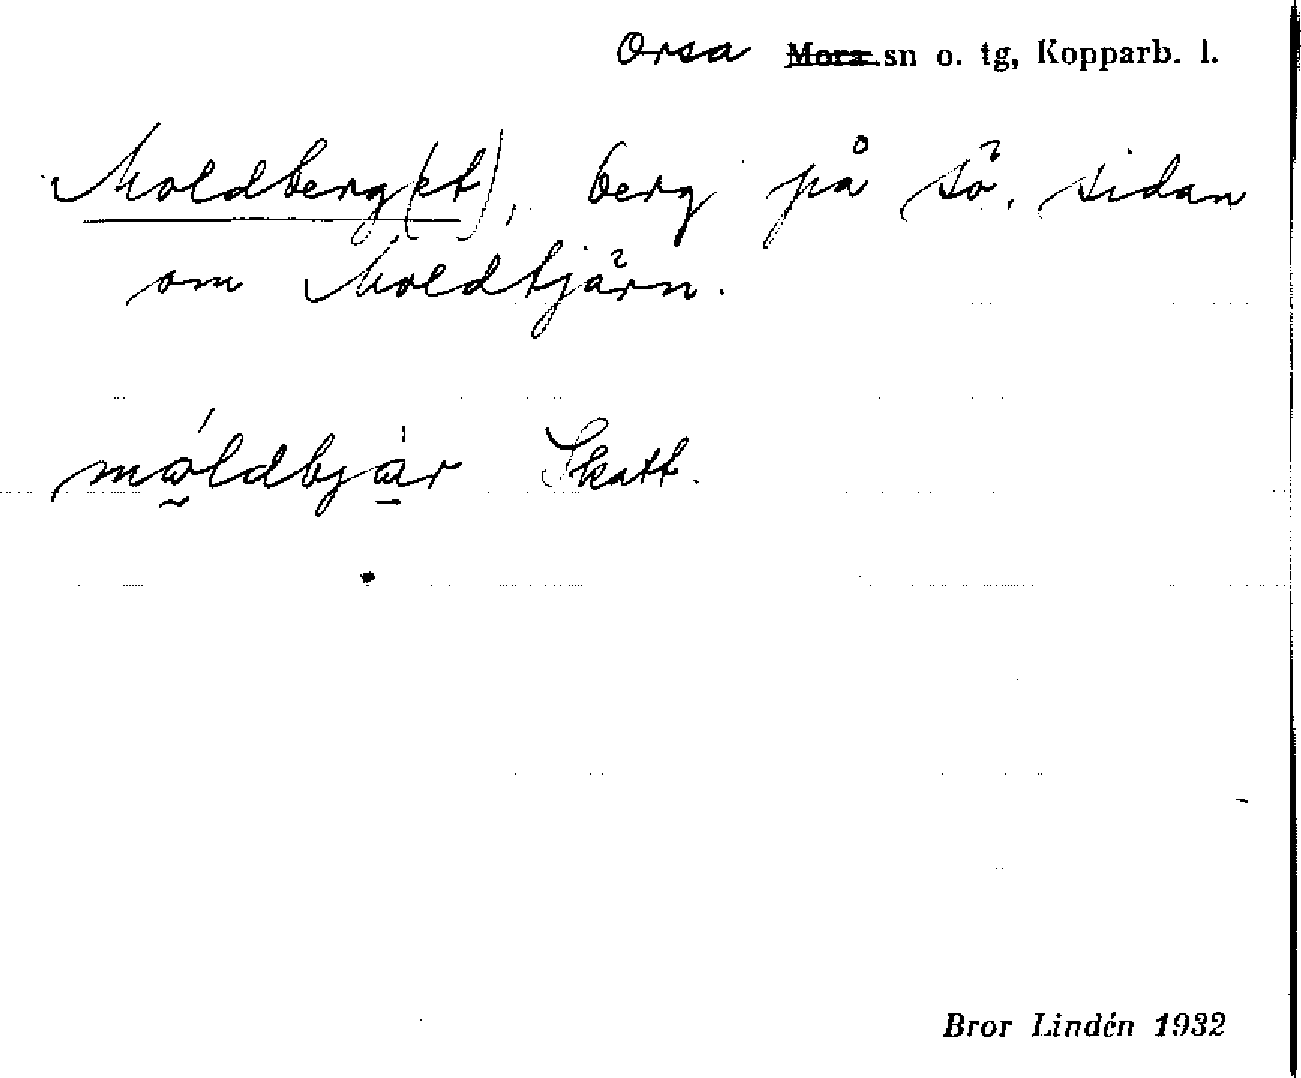 Orsa Mora sn o. tg, Kopparb. l.
Moldberg(et), berg på sö. sidan
om Moldtjärn.
Skatt.
Bror Lindén 1932